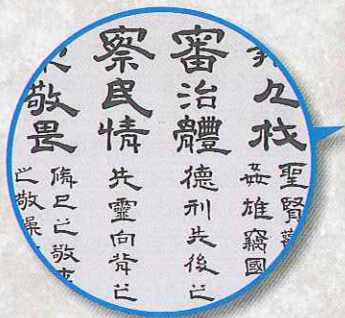 人材
聖賢
姦雄竊國
審治體
德刑先後之
察民情
生靈向背之
敬畏
脩己之敬
之敬操